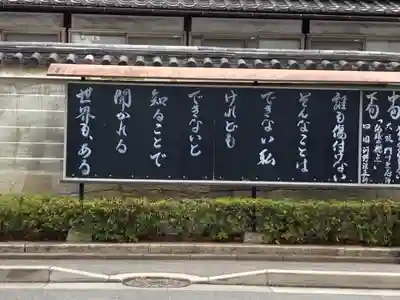 誰も傷付けない
そんなことは
できない私
けれども
できないと
知ることで
開かれる
世界も、ある